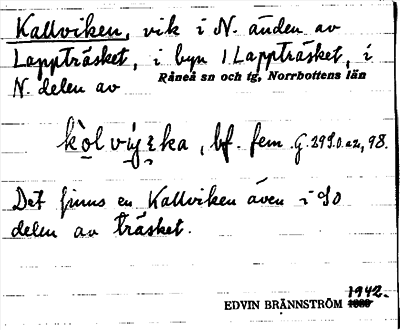 Kallviken, vik i N. änden av
Lappträsket, i byn 1 Lappträsket, i
Råneå sn och tg, Norrbottens län
N. delen av
bf. fem. G. 29
Det finns en Kallviken även i SO
delen av träsket.
1942.
EDVIN BRÄNNSTRÖM 1939